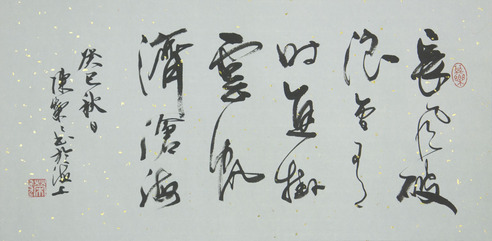 長風破
浪會有
时直掛
雲帆
濟滄海
癸巳秋日
陳榮之书於海上